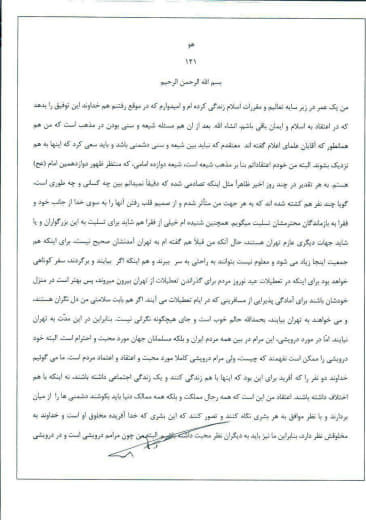 هو
۱۲۱
بسم الله الرحمن الرحیم
من یک عمر در زیر سایه تعالیم و مقررات اسلام زندگی کرده ام و امیدوارم که در موقع رفتنم هم خداوند این توفیق را بدهد
که در اعتقاد به اسلام و ایمان باقی باشم، انشاء الله. بعد از آن هم مسئله شیعه و سنی بودن در مذهب است که من هم
همانطور که آقایان علمای اعلام گفته اند معتقدم که نباید بین شیعه و سنی دشمنی باشد و باید سعی کرد که اینها به هم
نزدیک بشوند. البته من خودم اعتقاداتم بنا بر مذهب شیعه است، شیعه دوازده امامی، که منتظر ظهور دوازدهمین امام (عج)
هستم. به هر تقدیر در چند روز اخیر ظاهراً مثل اینکه تصادمی شده که دقیقاً نمیدانم بین چه کسانی و چه طوری است،
گویا چند نفر هم کشته شده اند که به هر جهت من متأثر شدم و از صمیم قلب رفتن آنها را به سوی خدا از جانب خود و
فقرا به بازماندگان محترمشان تسلیت میگویم. همچنین شنیده ام خیلی از فقرا هم شاید برای تسلیت به این بزرگواران و یا
شاید جهات دیگری عازم تهران هستند، حال آنکه من قبلاً هم گفته ام به تهران آمدنشان صحیح نیست. برای اینکه هم
جمعیت اینجا زیاد می شود و معلوم نیست بتوانند به راحتی به سر ببرند و هم اینکه اگر بیایند و برگردند، سفر کوتاهی
خواهد بود برای اینکه در تعطیلات عید نوروز مردم برای گذراندن تعطیلات از تهران بیرون میروند، پس بهتر است در منزل
خودشان باشند برای آمادگی پذیرایی از مسافرینی که در ایام تعطیلات می آیند. اگر هم بابت سلامتی من دل نگران هستند،
و می خواهند به تهران بیایند، بحمدالله حالم خوب است و جای هیچگونه نگرانی نیست. بنابراین در این مدّت به تهران
نیایند. امّا در مورد درویشی، این مرام در بین همه مردم ایران و بلکه مسلمانان جهان مورد محبت و احترام است. البته خود
درویشی را ممکن است نفهمند که چیست، ولی مرام درویشی کاملا مورد محبت و اعتقاد و اعتماد مردم است. ما می گوئیم
خداوند دو نفر را که آفرید برای این بود که اینها با هم زندگی کنند و یک زندگی اجتماعی داشته باشند، نه اینکه با هم
اختلاف داشته باشند. اعتقاد من این است که همه رجال مملکت و بلکه همه ممالک دنیا باید بکوشند دشمنی ها را از میان
بردارند و با نظر موافق به هر بشری نگاه کنند و تصور کنند که این بشری که خدا آفریده مخلوق او است و خداوند به
مخلوقش نظر دارد، بنابراین ما نیز باید به دیگران نظر محبت داشته البته من چون مرامم درویشی است و در درویشی